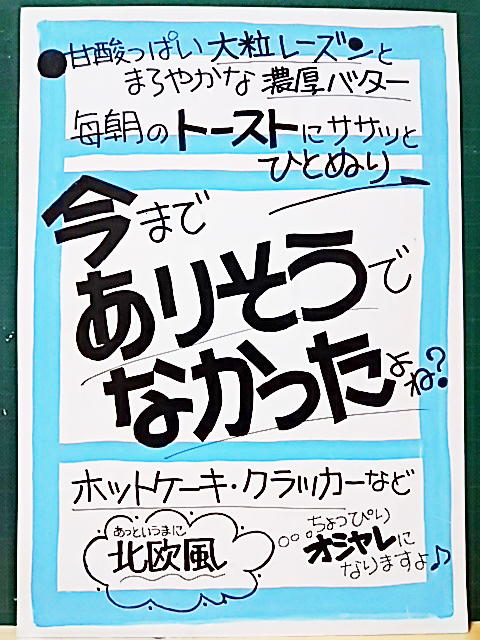 ●甘酸っぱい大粒レーズンと
まろやかな濃厚バター
毎朝のトーストにササッと
ひとぬり
今まで
ありそうで
なかったよね?
ホットケーキ・クラッカーなど
あっというまに
北欧風
ちょっぴり
オシャレに
なりますよ♪